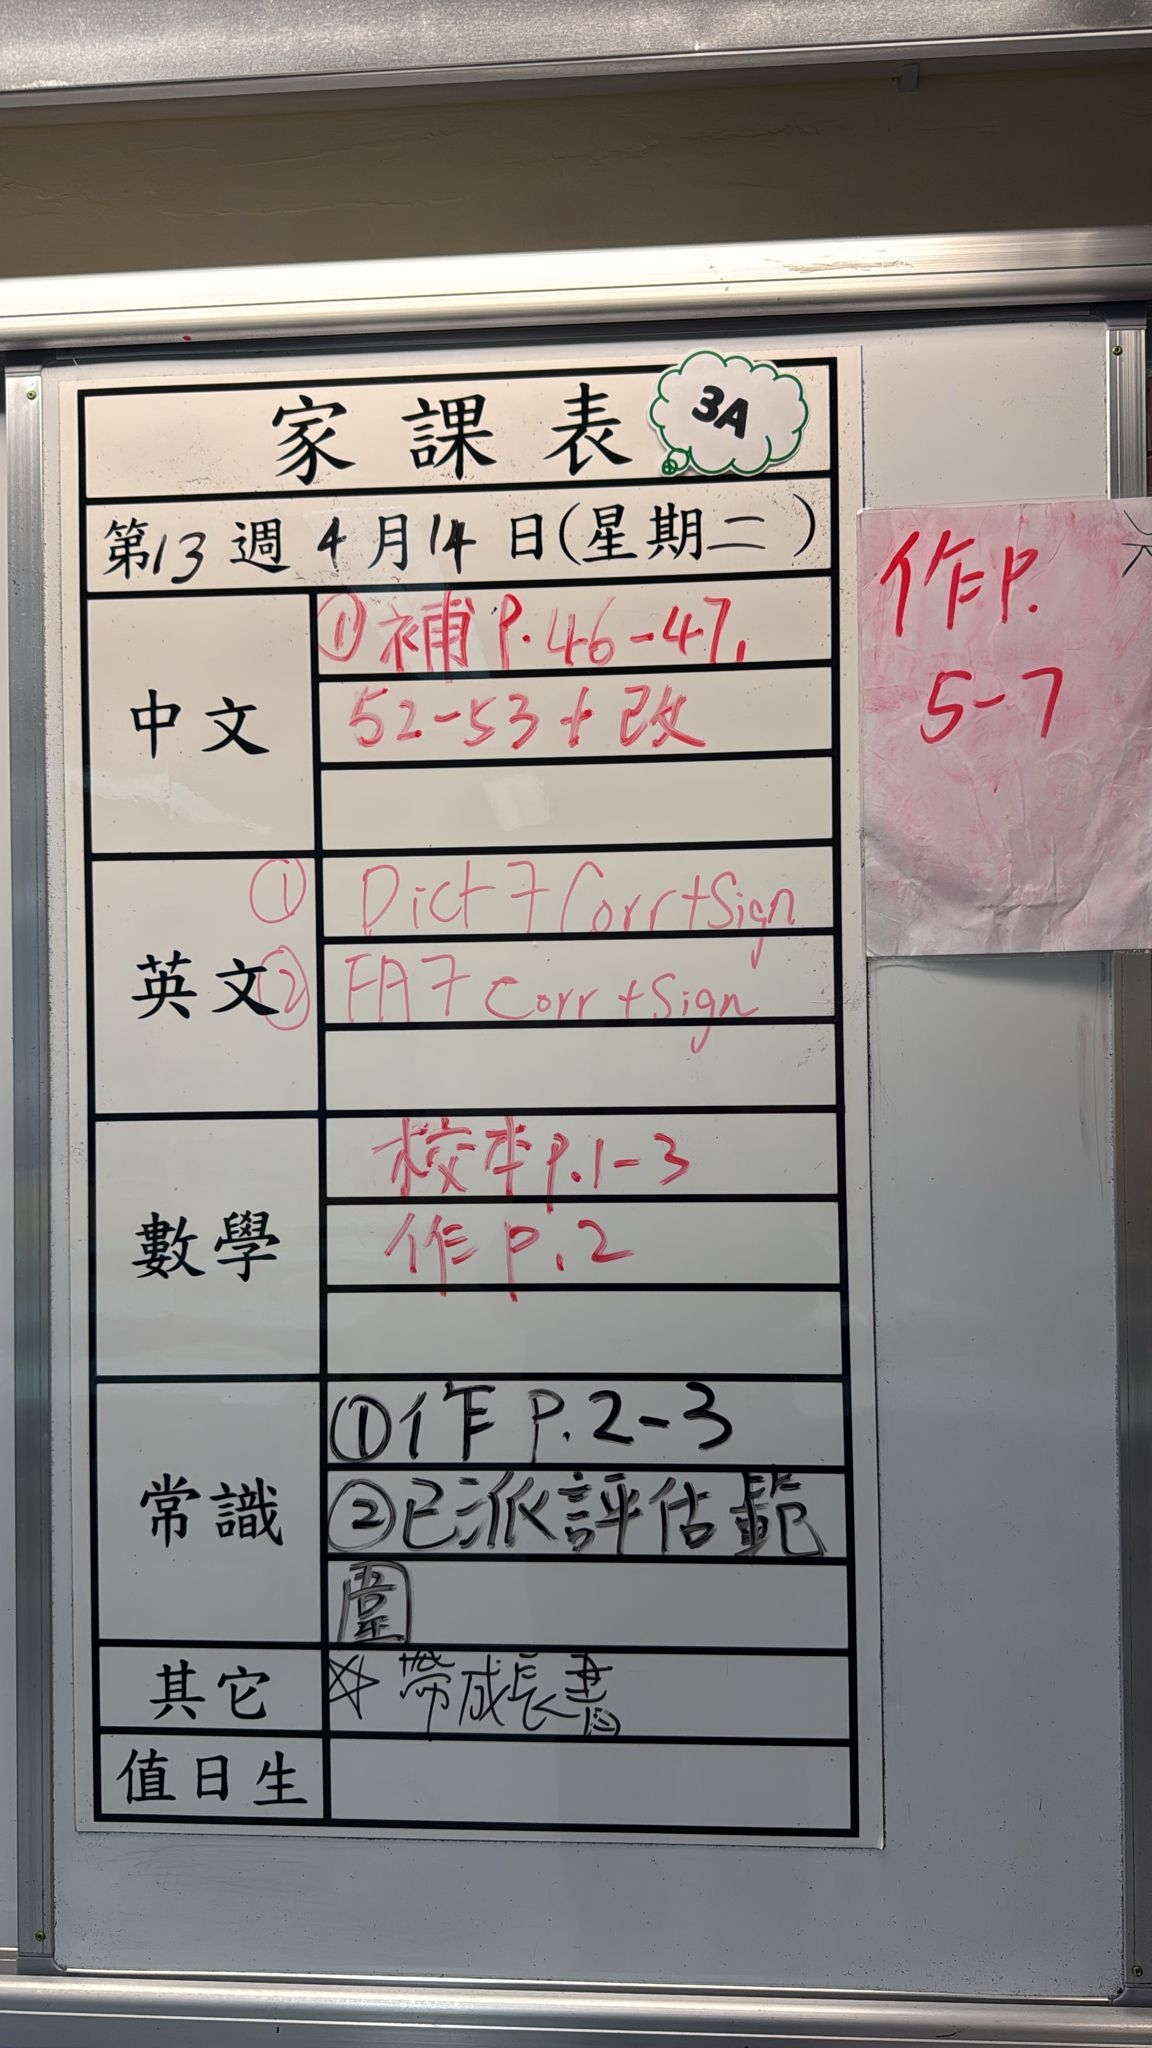 家課表 3A
第13週 4月14日(星期二)
中文
①補 P.46-47,
52-53+改
英文
① Dict 7 Corr+Sign
② FA7 Corr+Sign
數學
校本 P.1-3
作 P.2
常識
①作 P.2-3
②已派評估範
圍
其它
☆ 帶成長書
值日生
作 P.
5-7